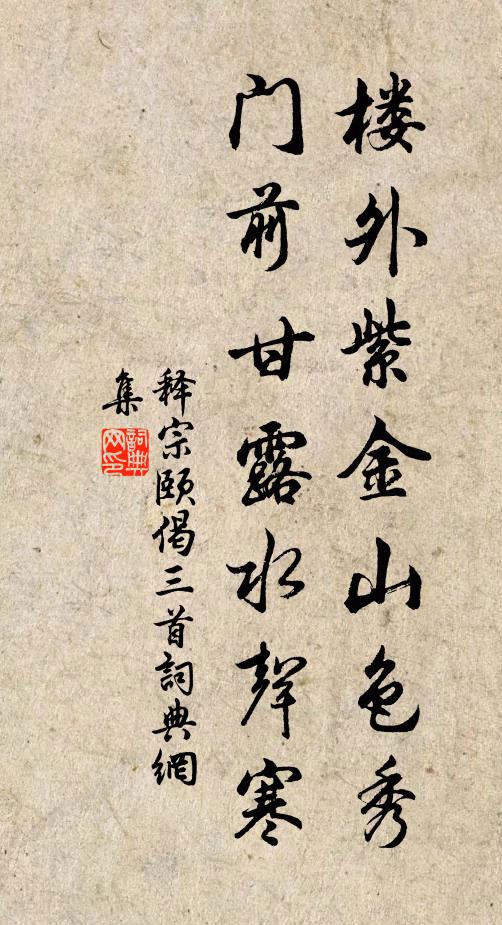 楼外紫金山色秀
门前甘露水聲寒
释宗颐偈三首詞典網
集
詞典网印